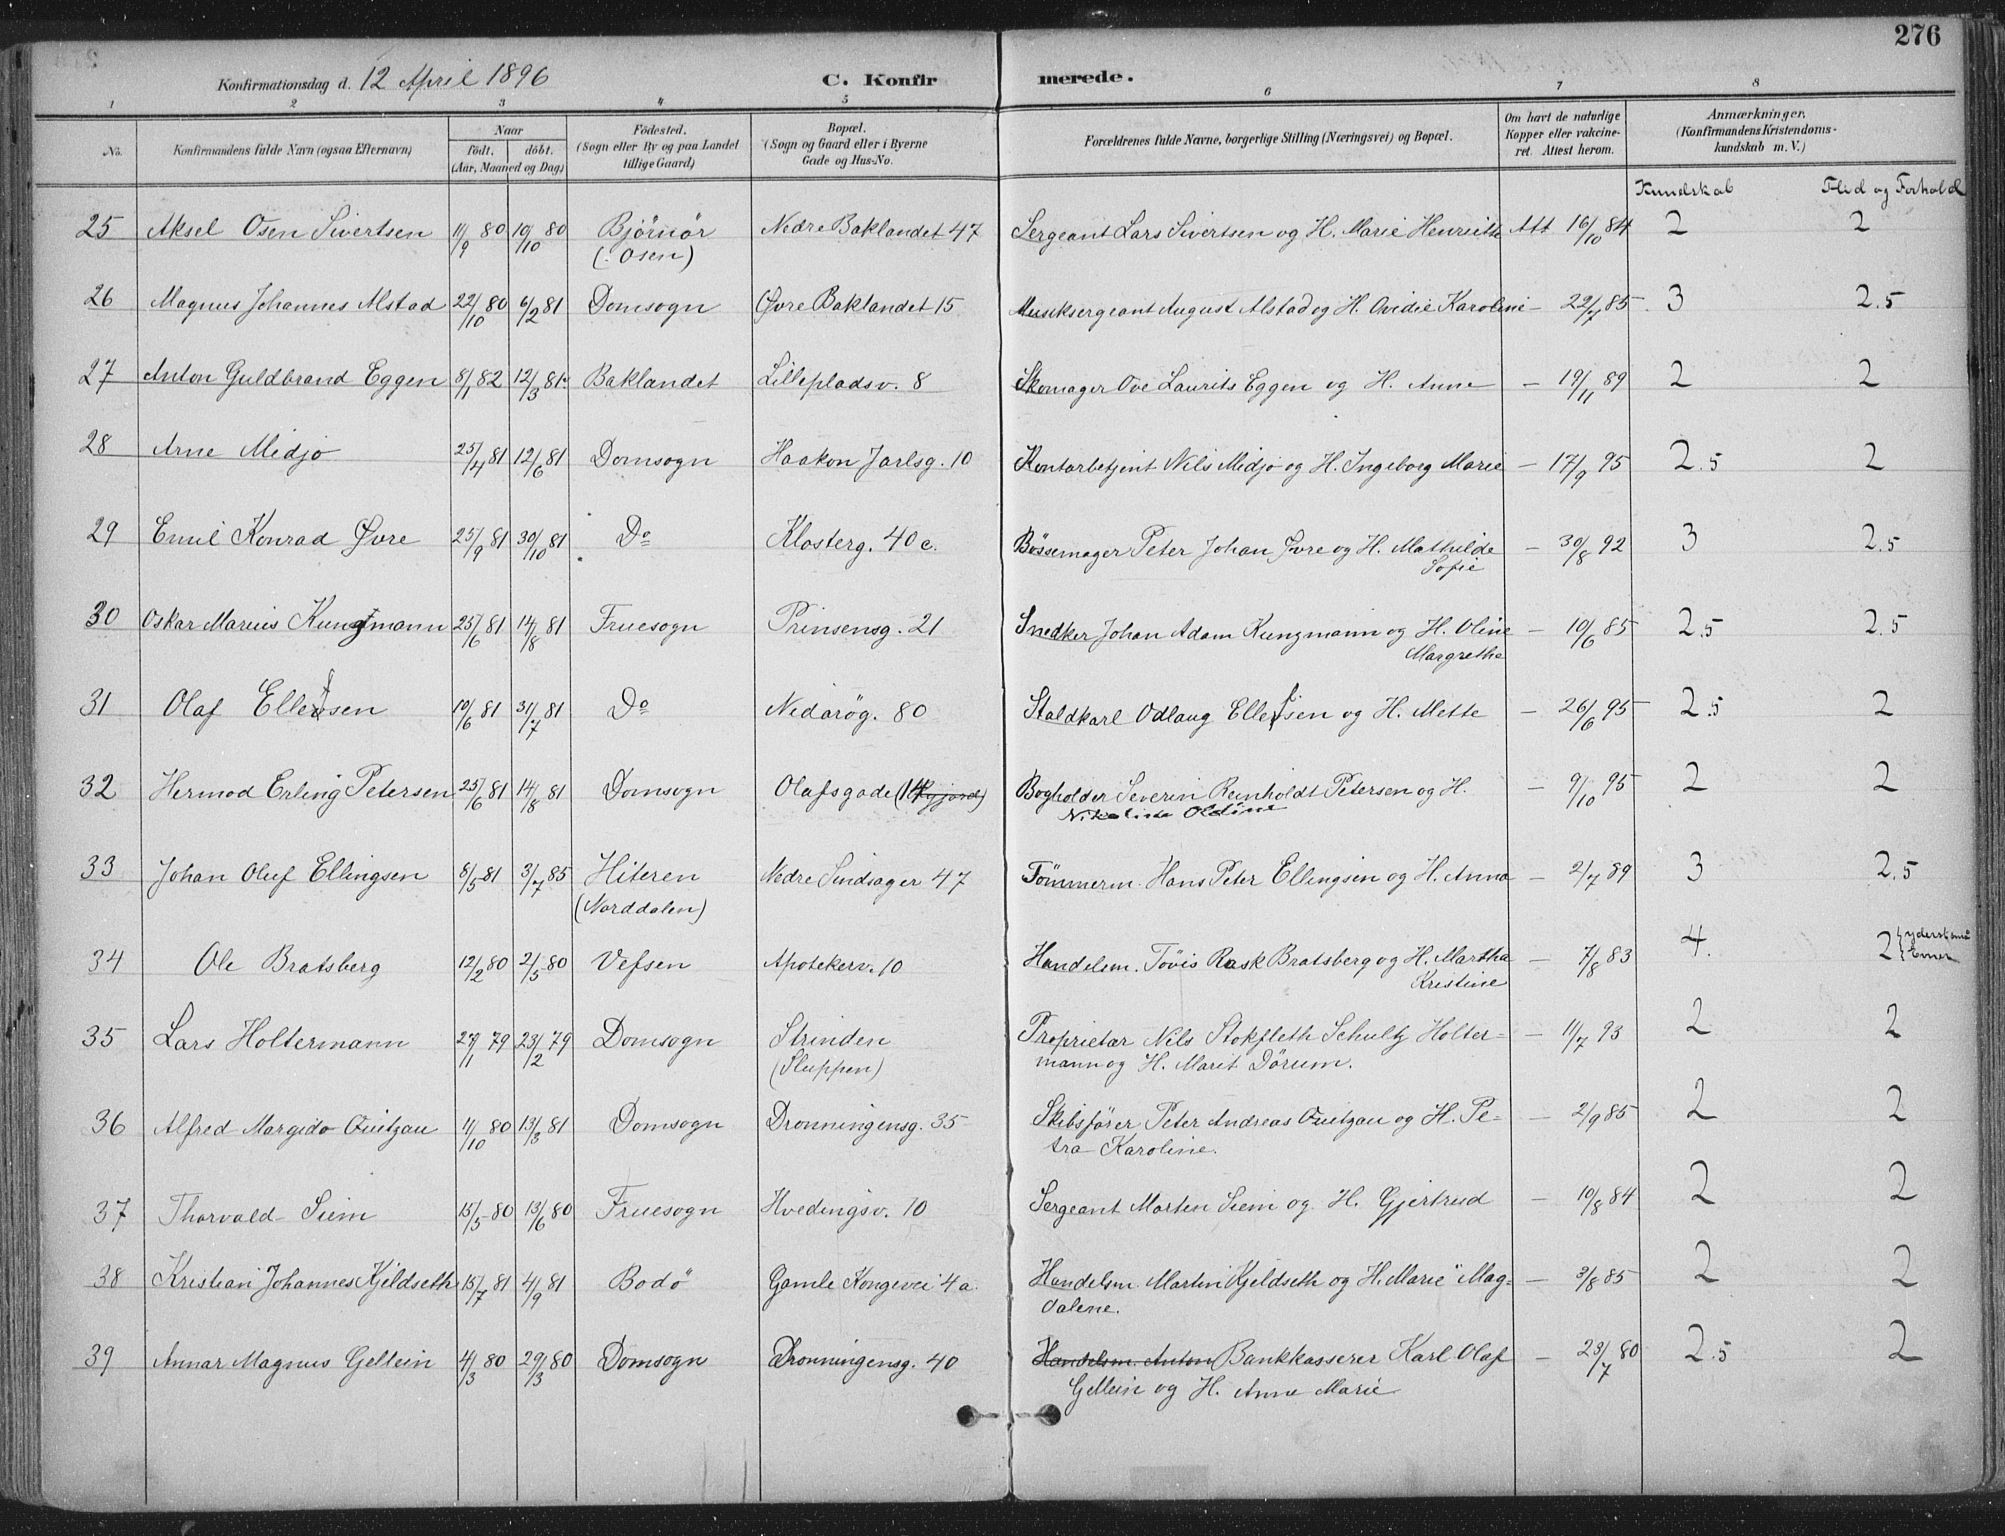 276
Konfirmationsdag d. 12 April 1896 C. Konfirmerede.
1 2 3 4 5 6 7 8
No. Konfirmandens fulde Navn (ogsaa Efternavn) Naar Födt. döbt. (Aar, Maaned og Dag) Födested. (Sogn eller By og paa Landet tillige Gaard) Bopæl. (Sogn og Gaard eller i Byerne Gade og Hus-No. Forældrenes fulde Navne, borgerlige Stilling (Næringsvei) og Bopæl. Om havt de naturlige Kopper eller vakcineret. Attest herom. Anmærkninger. (Konfirmandens Kristendomskundskab m. V.)
Kundskab Flid og Forhold
25 Aksel Osen Sivertsen 11/9 80 10/10 80 Björnör Nedre Baklandet 47 Sergeant Lars Sivertsen og H. Marie Henriette Att 16/10 84 2 2
(: Osen)
26 Magnus Johannes Alstad 22/10 80 6/2 81 Domsogn Øvre Baklandet 15 Musiksergeant August Alstad og H. Ovidie Karoline – 22/7 85 3 2.5
27 Anton Guldbrand Eggen 8/1 82 12/3 81 Baklandet Lillepladsv. 8 Skomager Ove Laurits Eggen og H. Anne – 19/11 89 2 2
28 Arne Midjo 25/4 81 12/6 81 Domsogn Haakon Jarlsg. 10 Kontorbetjent Nils Midjo og H. Ingeborg Marie – 17/9 95 2.5 2
29 Emil Konrad Øvre 25/9 81 30/10 81 Do Klosterg. 40 c. Bössemager Peter Johan Øvre og H. Mathilde – 30/8 92 3 2.5
Sofie
30 Oskar Marius Kungmann 25/6 81 14/8 81 Fruesogn Prinsensg. 21 Snedker Johan Adam Kungmann og H. Oline – 10/6 85 2.5 2.5
Margrethe
31 Olaf Ellefsen 10/6 81 31/7 81 Do Nidarög. 80 Staldkarl Odlaug Ellefsen og H. Mette – 26/6 95 2.5 2
32 Hermod Erling Petersen 25/6 81 14/8 81 Domsogn Olafsgade 14 Bogholder Severin Reinholdt Petersen og H. – 9/10 95 2 2
Nikoline Oldine
33 Johan Oluf Ellingsen 8/5 81 3/7 85 Hiteren Nedre Sindsager 47 Tömmerm. Hans Peter Ellingsen og H. Anna – 2/7 89 3 2.5
(Norddalen)
34 Ole Bratsberg 12/2 80 2/5 80 Vefsen Apotekerv. 10 Handelsm. Tövis Rask Bratsberg og H. Martha – 7/8 83 4. 2 yderst små Evner
Kristine
35 Lars Holtermann 27/1 79 23/2 79 Domsogn Strinden Proprietær Nils Stokfleth Schultz Holter– – 11/7 93 2 2
(Sluppen) mann og H. Marit Dörum.
36 Alfred Margido Quitzau 11/10 80 13/3 81 Domsogn Dronningensg. 35 Skibsförer Peter Andreas Quitzau og H. Pe– – 2/9 85 2 2
tra Karoline.
37 Thorvald Siem 15/5 80 13/6 80 Fruesogn Hvedingsv. 10 Sergeant Morten Siem og H. Gjertrud – 10/8 84 2 2
38 Kristian Johannes Kjeldseth 15/7 81 4/9 81 Bodö Gamle Kongevei 4 a. Handelsm. Martin Kjeldseth og H. Marie Mag– – 3/8 85 2 2
dalene.
39 Annar Magnus Gellein 4/3 80 29/3 80 Domsogn Dronningensg. 40 Handelsm. Anton Bankkasserer Karl Olaf – 23/7 80 2.5 2
Gellein og H. Anne Marie